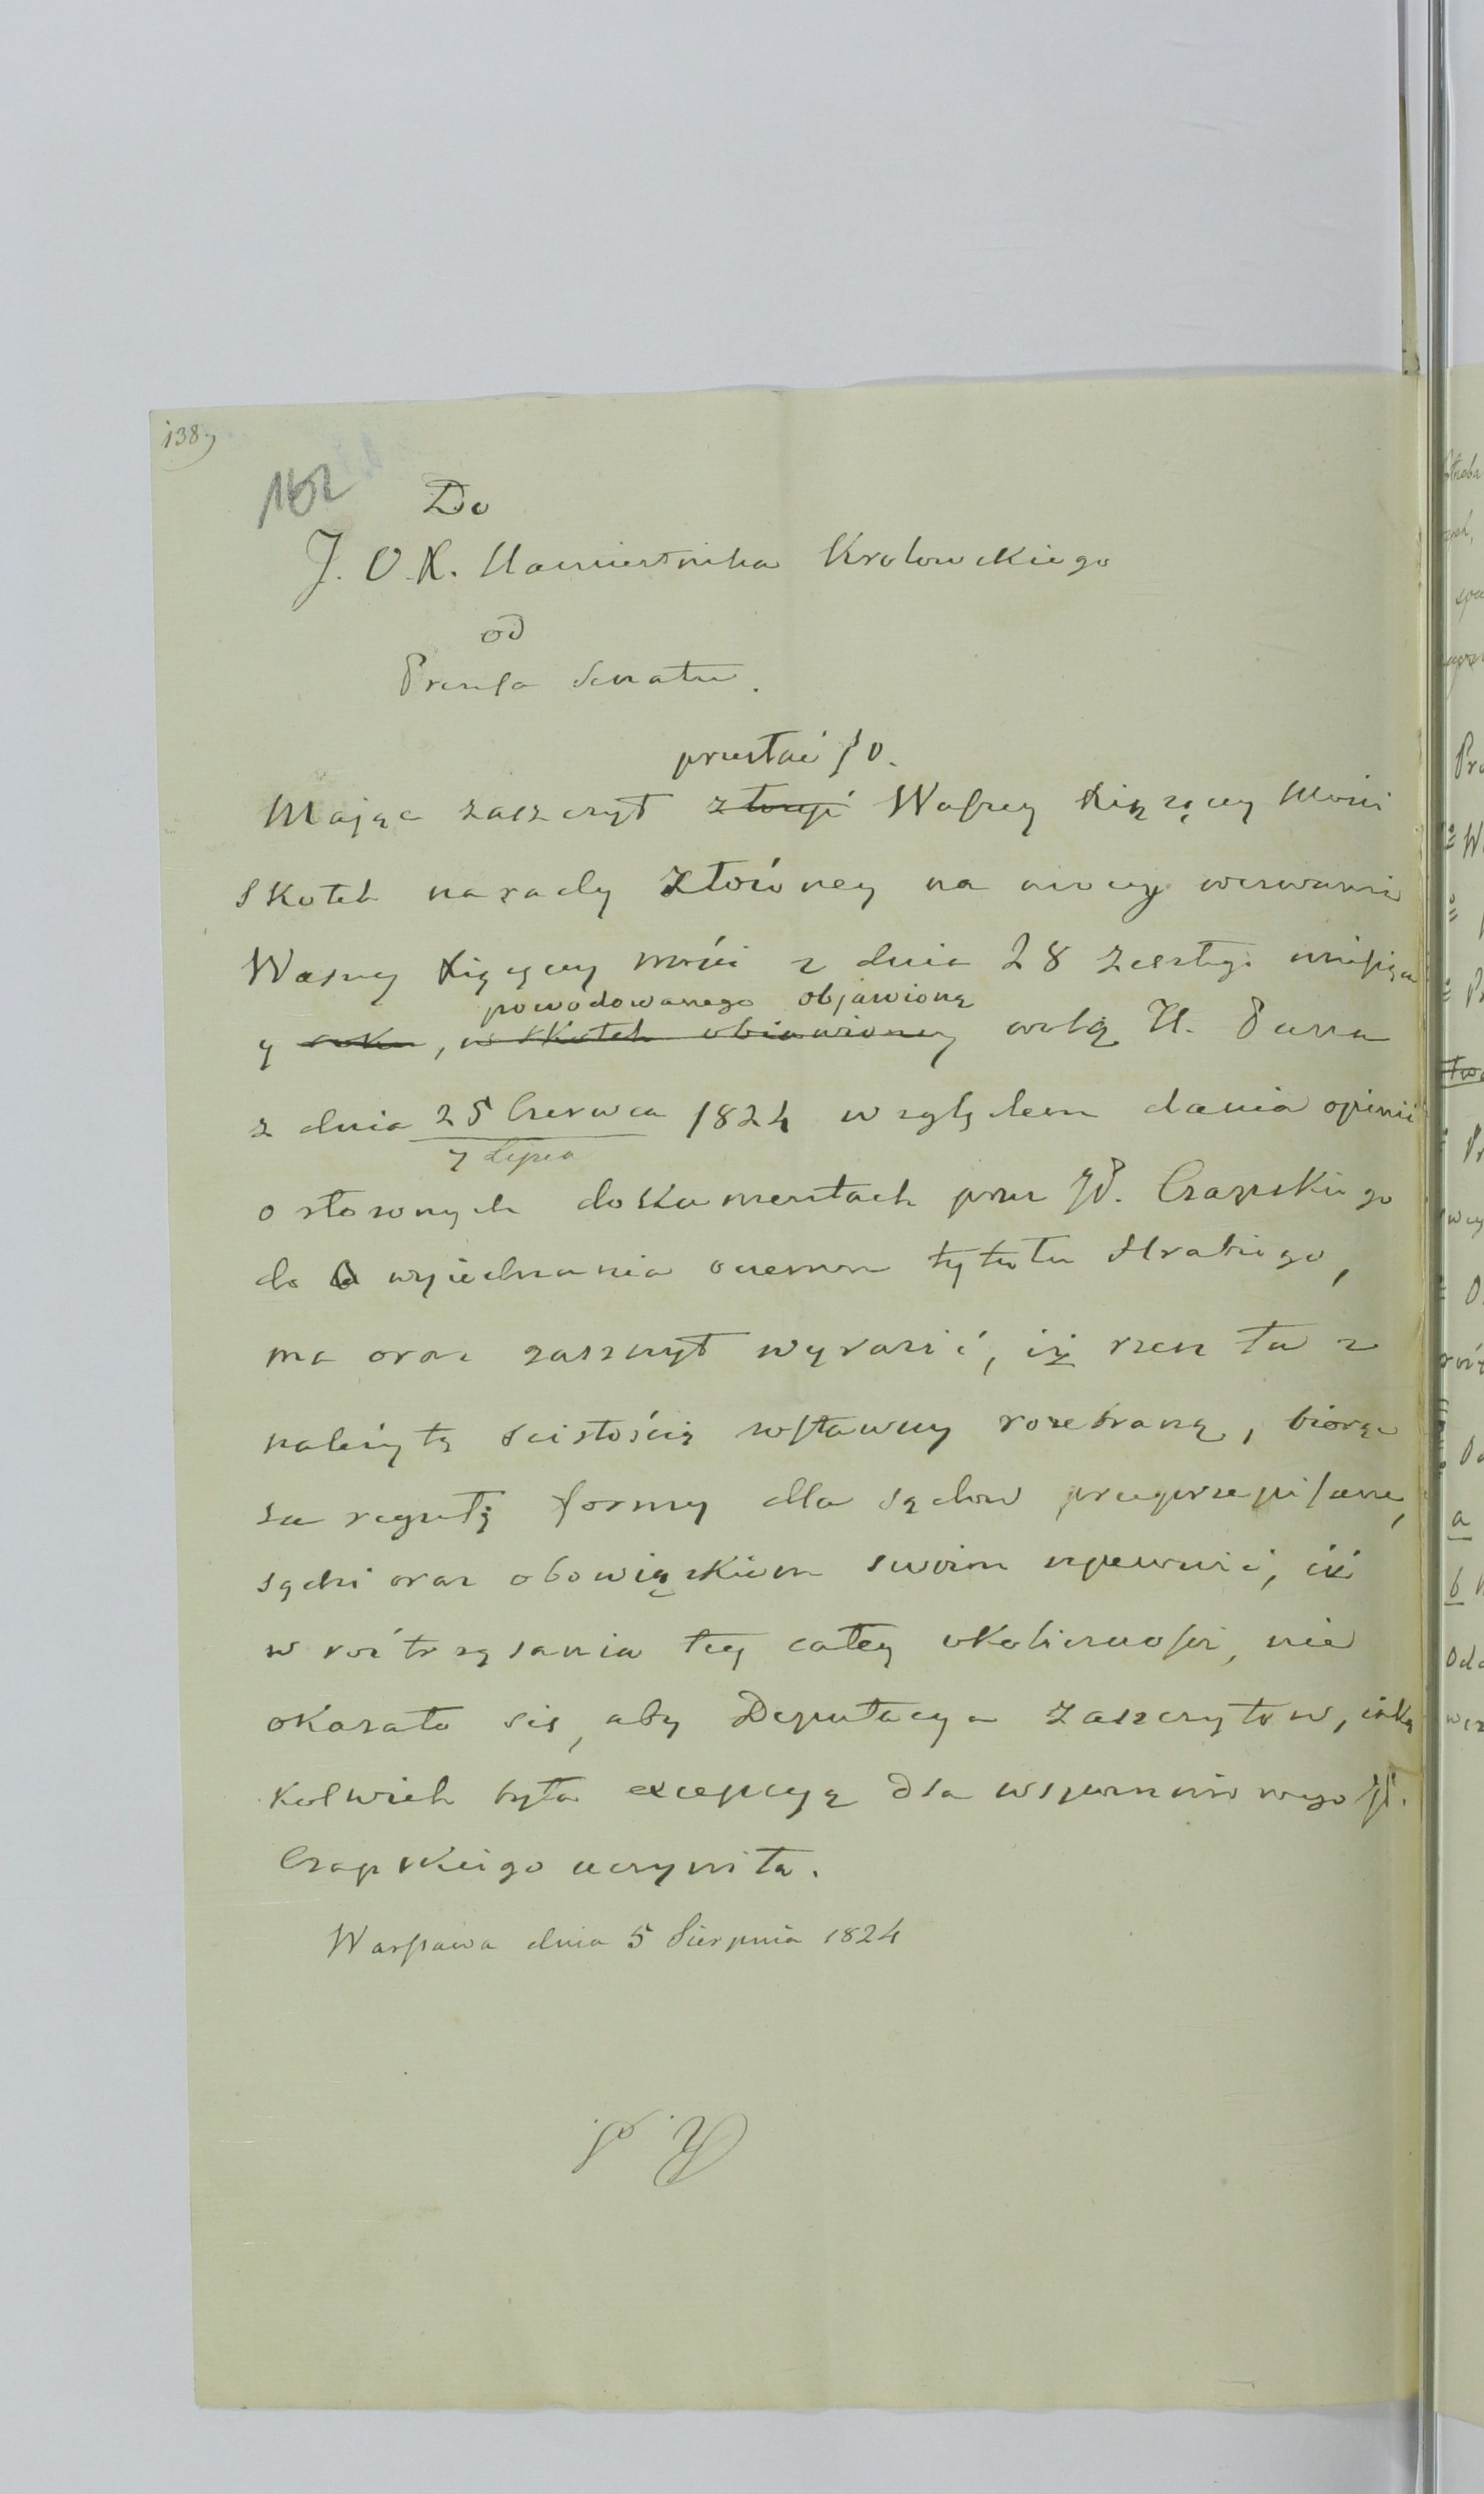 138
162
Do
J. O. X. Namiestnika Krolewskiego
od
Prezesa Senatu.
przesłać
Mając zaszczyt złożyć Waszey Xiążęcey Mości
skutek narady złożoney na mocy wezwania
Waszey Xiążęcey Mości z dnia 28 zeszłego miesiąca
powodowanego objawioną
y roku, w skutek obiawioney wolą N. Pana
z dnia 25 Czerwca 1824 względem dania opinii
7 Lipca
o złożonych dokumentach przez JW. Czapskiego
do wyiednania onemu tytułu Hrabiego,
ma oraz zaszczyt wyrazić, iż rzecz ta z
należytą scisłością zostawszy rozebraną, biorąc
za regułę formy dla sądow przeprzepisane,
sądzi oraz obowiązkiem swoim zapewnić, iż
w roztrząsaniu tey całey okoliczności, nie
okazało się, aby Deputacya zaszczytow, iaką
kolwiek była excepcyą dla wspomnionego JW.
Czapskiego uczyniła.
Warszawa dnia 5 Sierpnia 1824